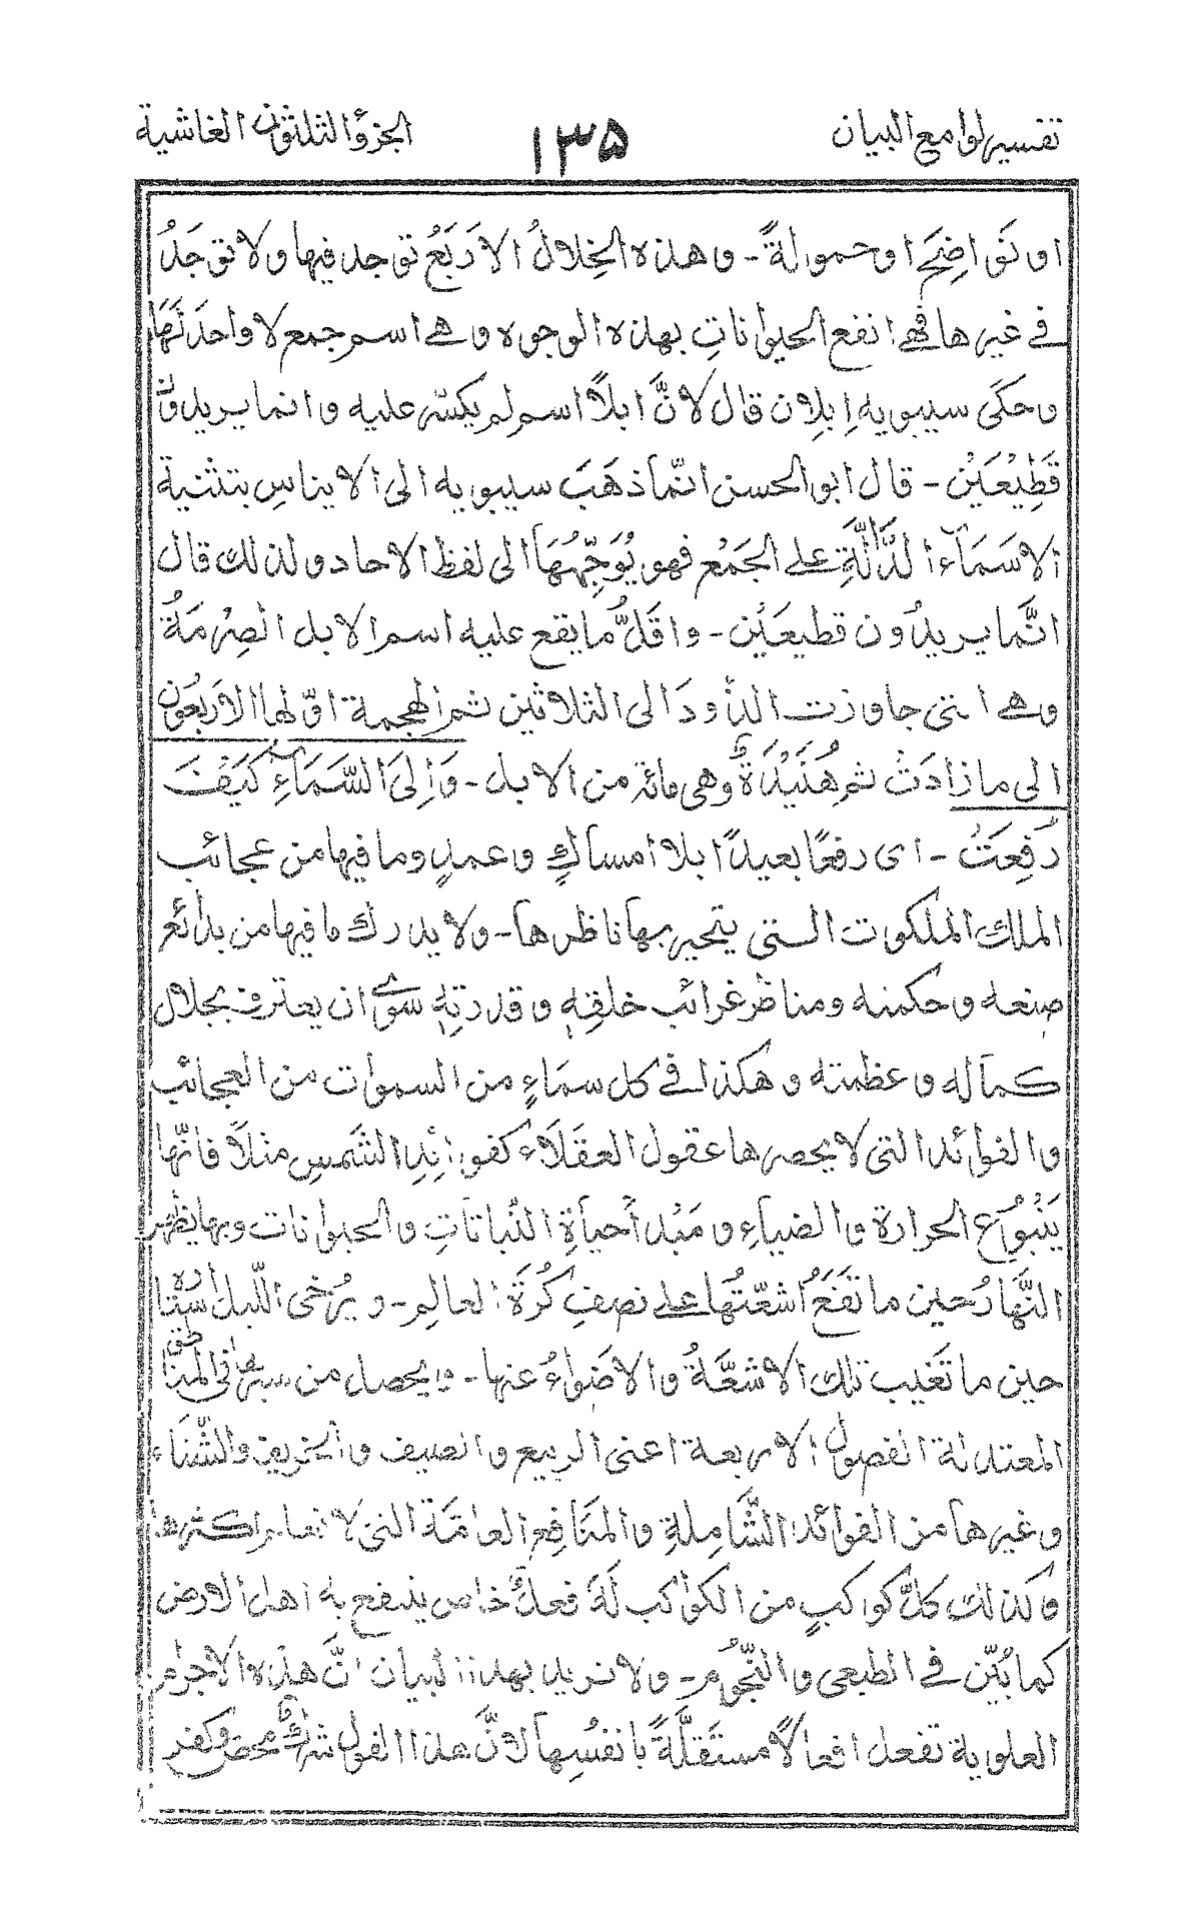 تفسیر لوامع البیان ۱۳۵ الجزؤ الثلثون الغاشیة
او نَوَاضِحَ او حمولةً - و هذه الخِلالُ الاَربَعُ توجد فیها و لا توجَدُ
فے غیرها فهے انفع الحیواناتِ بهذه الوجوه و هے اسم جمع لا واحدَ لَهَا
و حکَی سیبویه اِبِلان قال لانَّ ابلاً اسم لم یکسّر علیه و انما یریدون
قَطِیْعَیْن - قال ابو الحسن انّما ذهَبَ سیبویه الی الایناسِ بتثنیة
الاسَمَآء الدَّالَّةِ علے الجَمْع فهو یُوَجِّهُهَا الی لفظ الاحاد و لذلک قال
انَّما یریدُون قطیعَیْن - و اقَلُّ ما یقع علیه اسم الابل الصِرْمَةُ
و هے التی جاوزت الذَّودَ الی الثلاثین ثم الهجمة اوّلها الاَربَعُون
الی ما زادَتْ ثم هُنَیْدَةُ و هی مائة من الابل - وَ اِلَی السَّمَآءِ کَیْفَ
رُفِعَتْ - ای رفعًا بعیدًا بلا امساکٍ و عمدٍ و ما فیها من عجائب
الملک الملکوت التی یتحیر بها ناظرها - و لا یدرک ما فیها من بدائع
صنعه و حکمته و مناظر غرائب خلقِهٖ و قدرتِهٖ سوٰے ان یعترف بجلال
کماله و عظمته و هکذا فے کل سمَاءٍ من السموات من العجائب
و الفوائد التی لا یحصرها عقول العقَلَاء کفوائِدِ الشَمسِ مثلًا فانّها
یَنْبُوْع الحرارة و الضیاءِ و مَبْدأ حیاةِ النّباتاتِ و الحیوانات و بها یظهر
النَّهارُ حین ما تَقَعُ اشعّتُها علے نصفِ کُرَةِ العالمِ - و یُرْخی اللّیل استاره
حین ما تَغیب تلک الاشعَّةُ و الاضوَاءُ عنها - و یحصل من سیرها فی المناطق
المعتدلة الفصول الاربعة اعنی الربیع و الصیف و الخریف و الشّتَاء
و غیرها من الفوائد الشَّاملةِ و المنَافِع العامَّة التی لا اکثرها
و کذلک کلُّ کوکبٍ من الکواکب لَهُ فعلٌ خاص ینتفع به اهل الارض
کما بُیّن فے الطبعی و النُّجُوْم - و لا نرید بهذا البیان انَّ هذه الاجرام
العلویة تفعل افعالًا مستقلَّةً بانفُسِها لانَّ هذا القول شرکٌ محضٌ و کفر